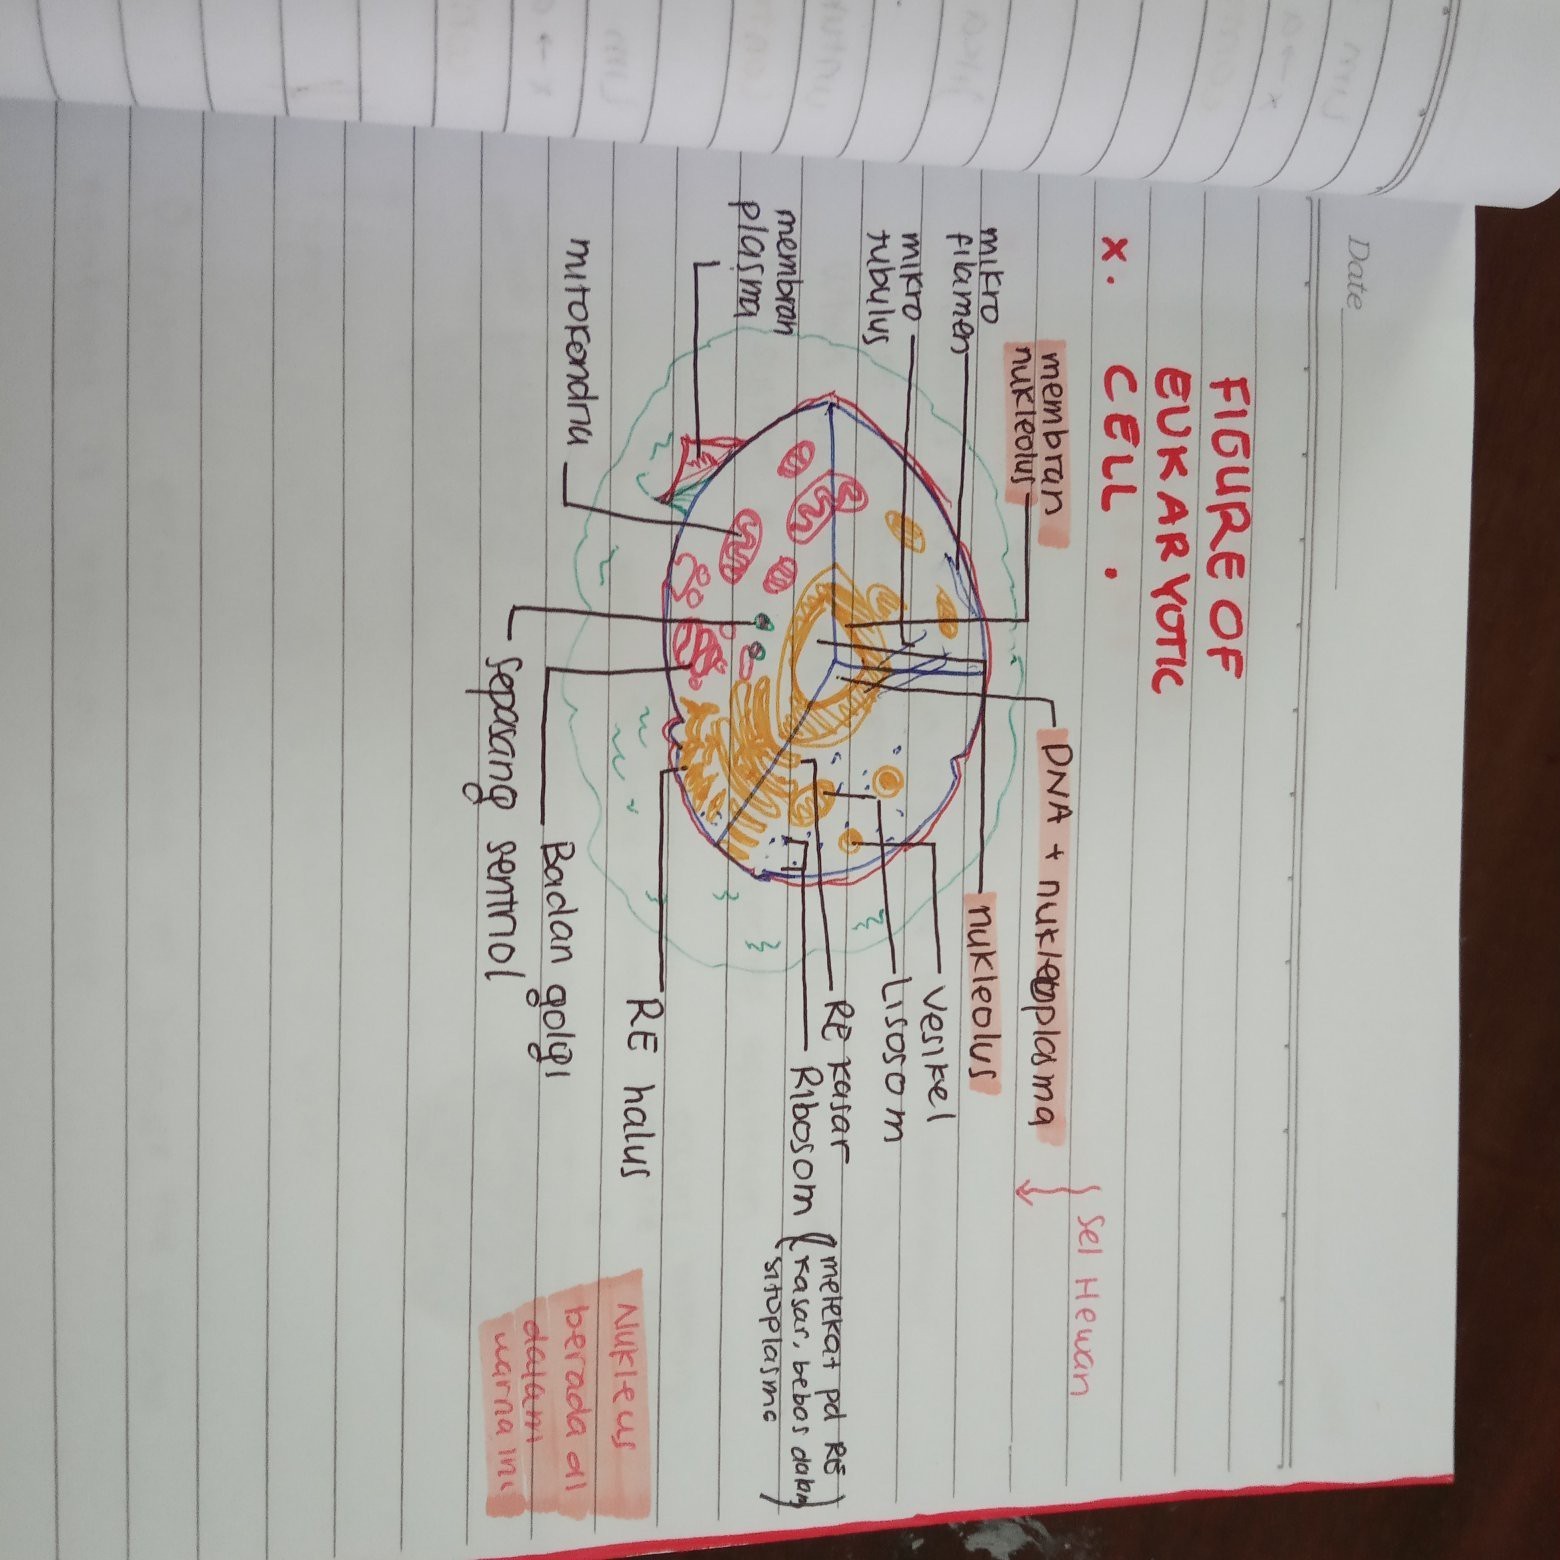 Date
FIGURE OF
EUKARYOTIC
x. CELL.
Sel Hewan
membran
nukleolus
DNA + nukleoplasma
mikro
filamen
nukleolus
mikro
tubulus
vesikel
Lisosom
RE kasar
membran
plasma
Ribosom (melekat pd RE
kasar, bebas dalam
sitoplasma)
RE halus
mitokondria
Badan golgi
sepasang sentriol
Nukleus
berada di
dalam
warna ini